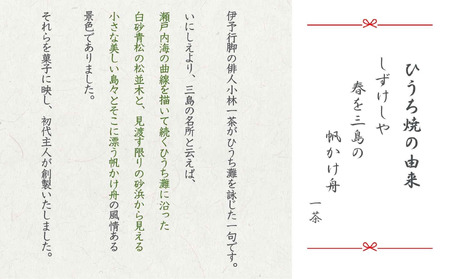 ひうち焼の由来
しずけしや
春を三島の
帆かけ舟
一茶
伊予行脚の俳人小林一茶がひうち灘を詠じた一句です。
いにしえより、三島の名所と云えば、
瀬戸内海の曲線を描いて続くひうち灘に沿った
白砂青松の松並木と、見渡す限りの砂浜から見える
小さな美しい島々とそこに漂う帆かけ舟の風情ある
景色でありました。
それらを菓子に映し、初代主人が創製いたしました。